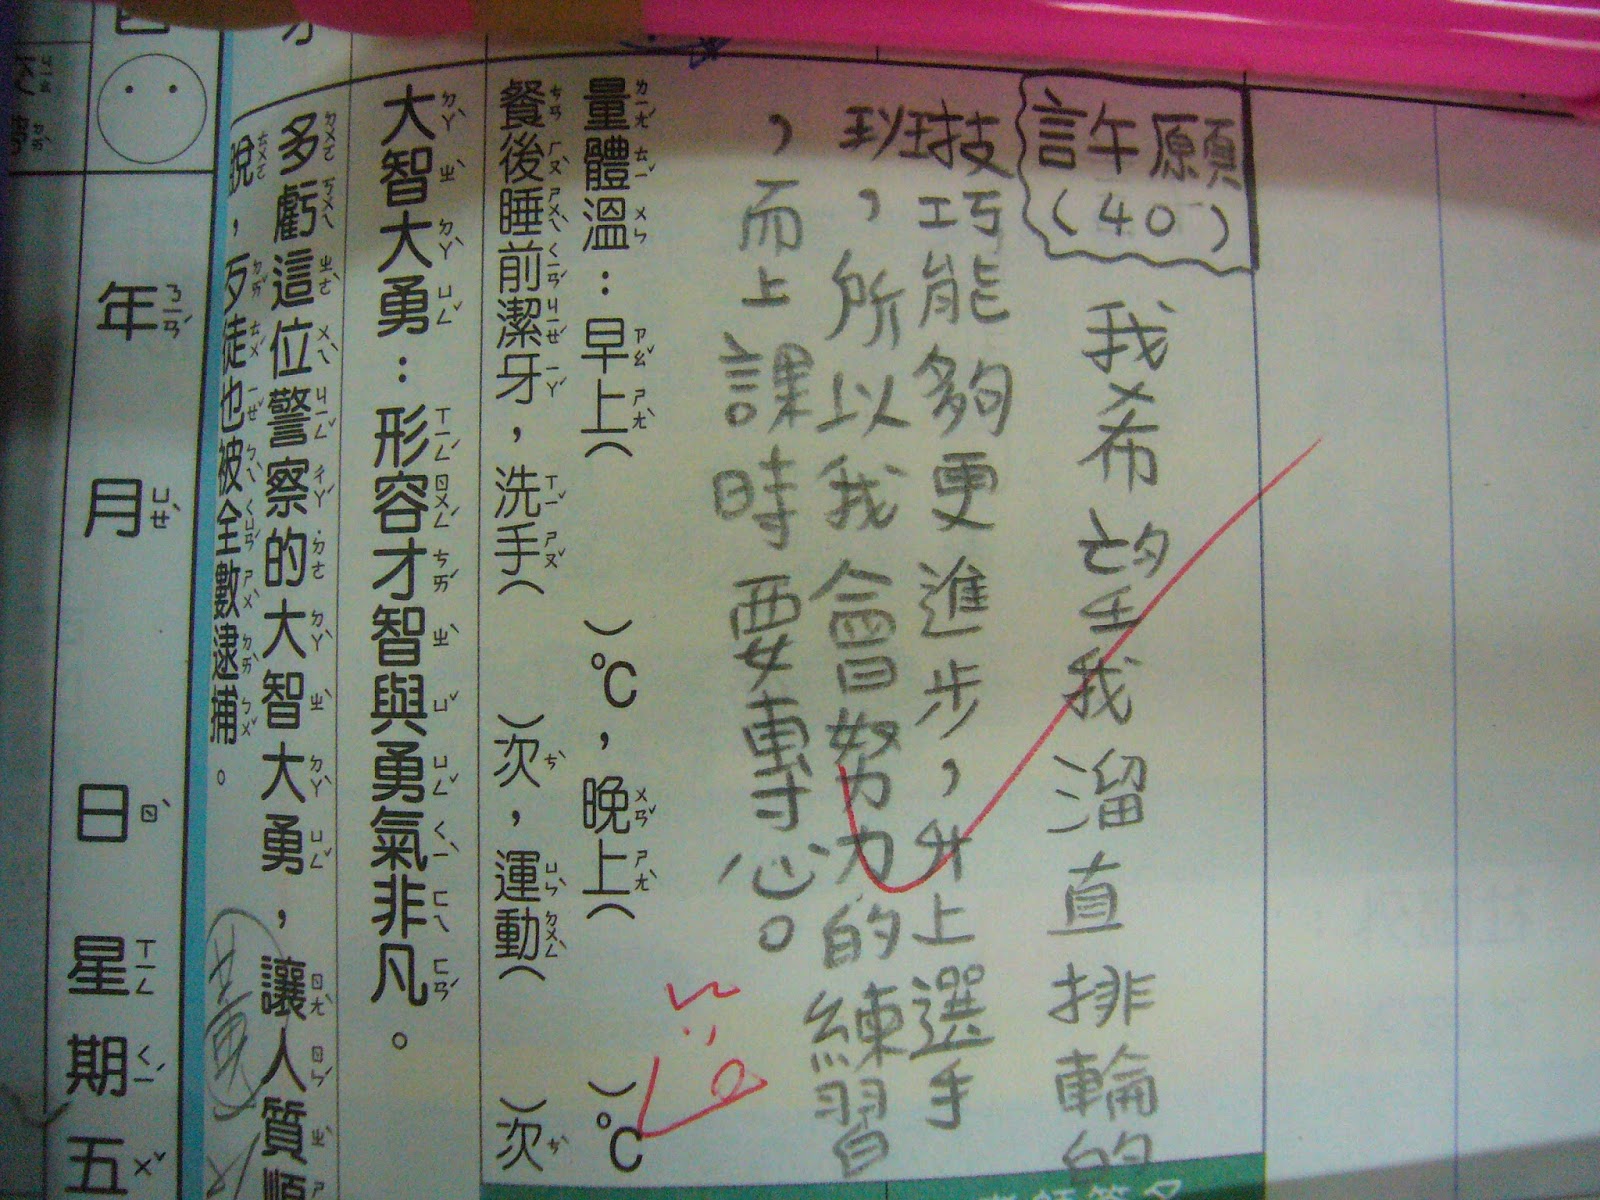 許願
(40)
我希望我溜直排輪的
技巧能夠更進步，升上選手
班，所以我會努力的練習
，而上課時要專心。
量體溫：早上( )℃，晚上( )℃
餐後睡前潔牙，洗手( )次，運動( )次
大智大勇：形容才智與勇氣非凡。
多虧這位警察的大智大勇，讓人質順
脫，歹徒也被全數逮捕。
年 月 日 星期五